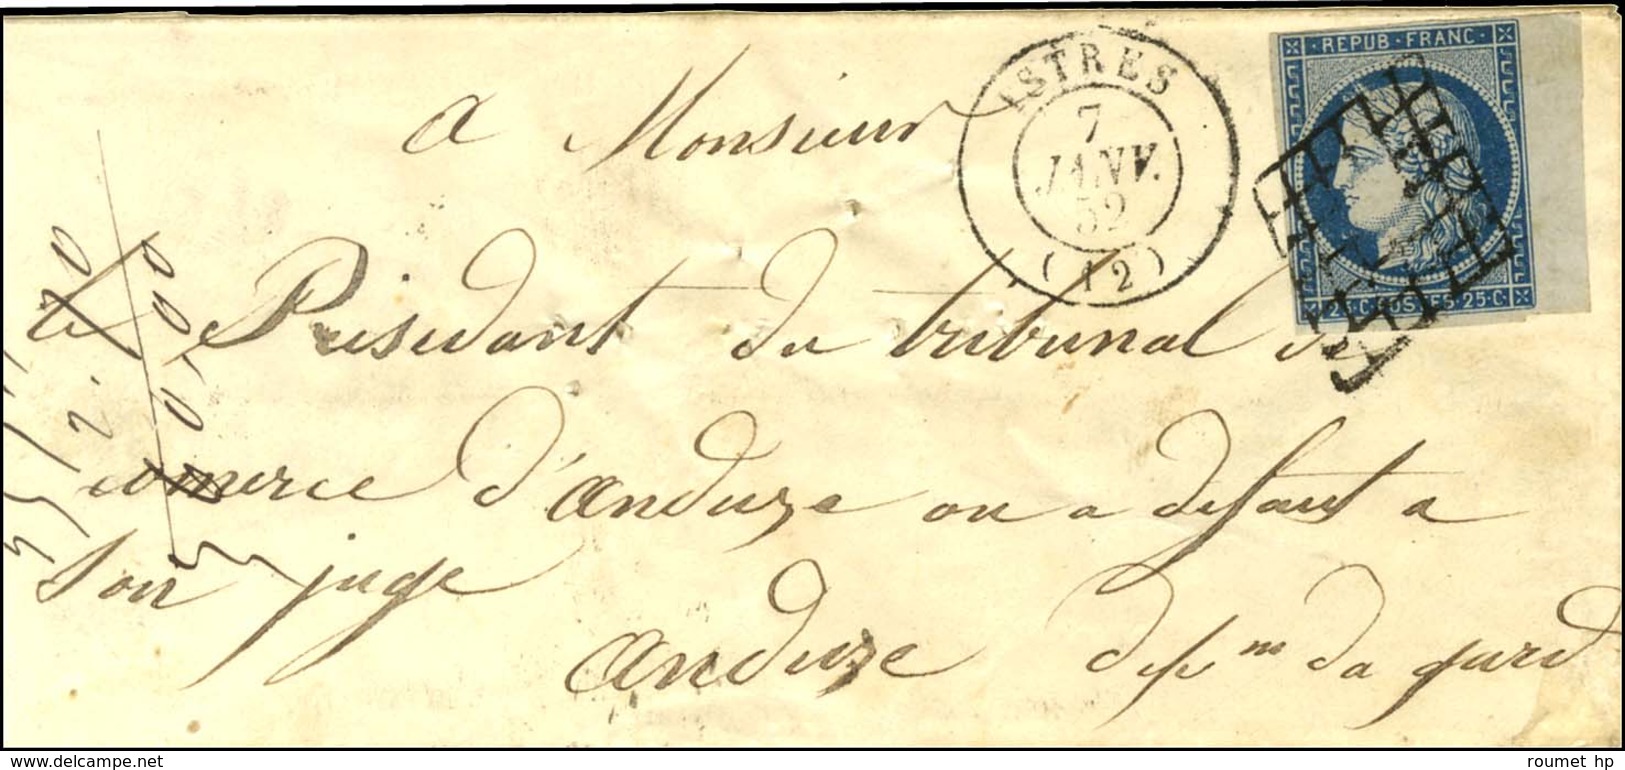 a Monsieur
ISTRES
7
JANV.
52
(12)
REPUB·FRANC·
25·C·POSTES·25·C·
le Président du tribunal de
commerce d'anduze ou a defaut a
Son juge
anduze
du gard
www.delcampe.net
roumet hp